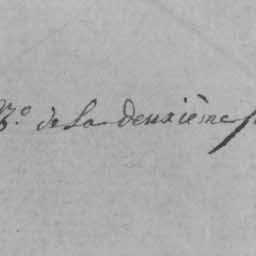 de la deuxième